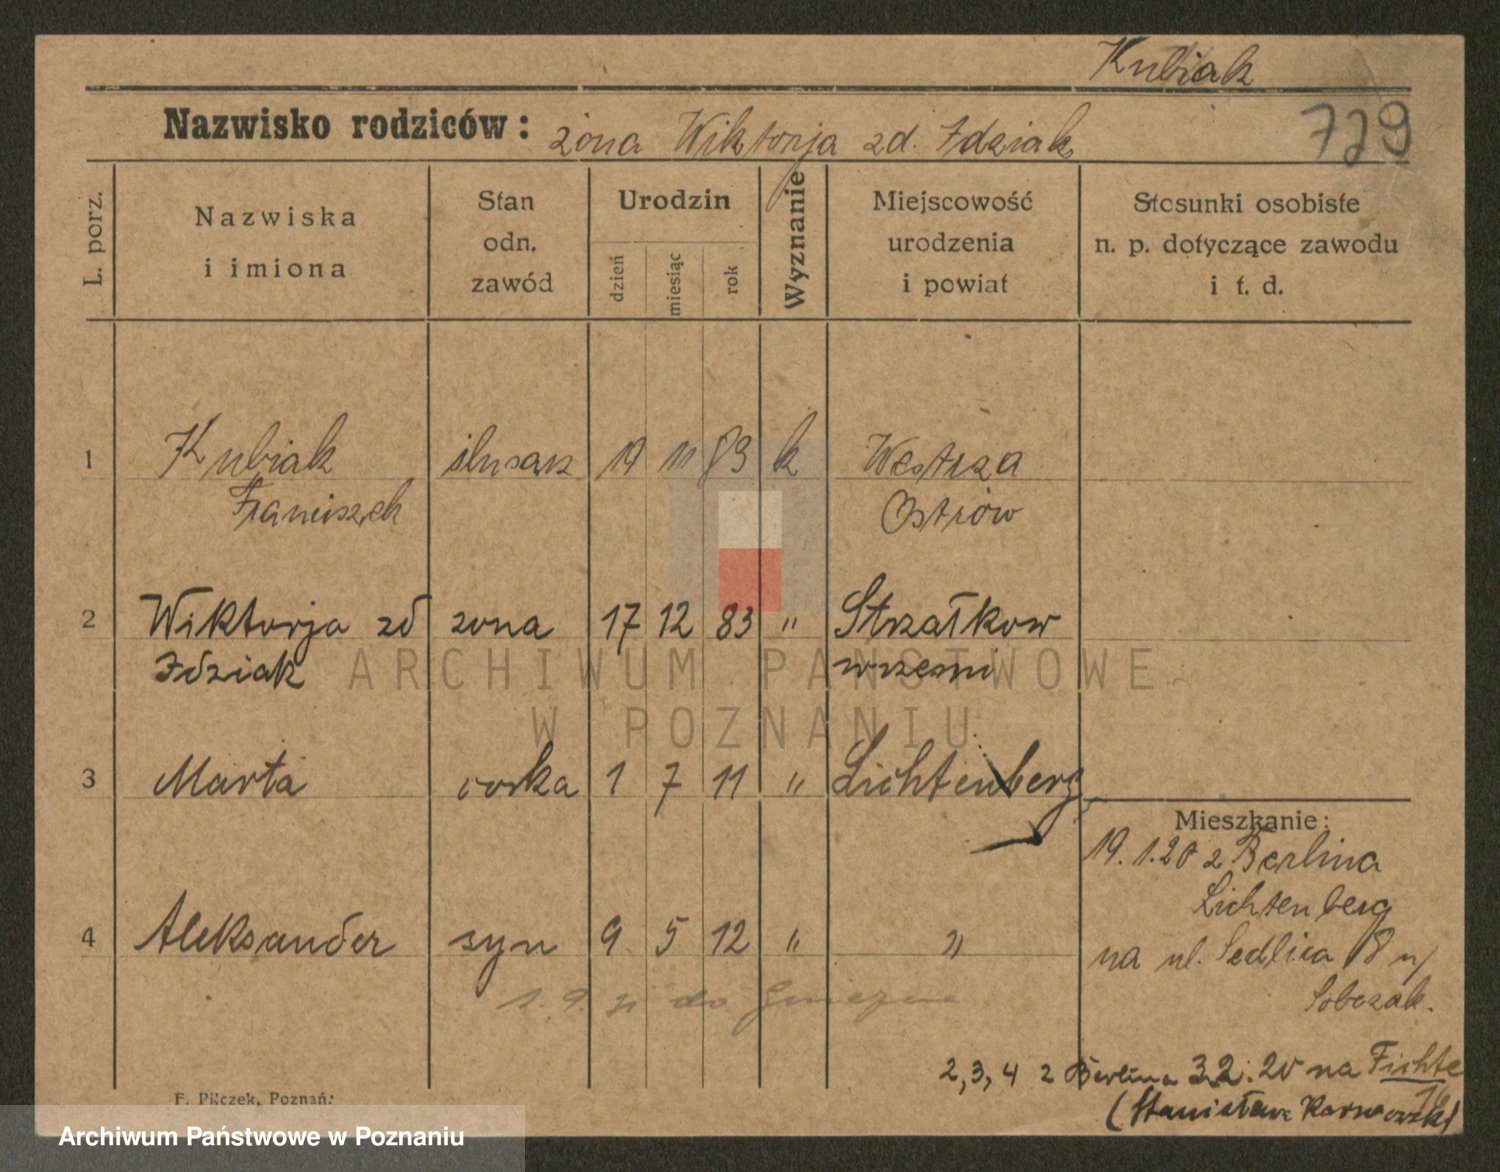 Kubiak
Nazwisko rodziców: żona Wiktorja zd. Idziak
729
L. porz.
Nazwiska
i imiona
Stan
odn.
zawód
Urodzin
dzień
miesiąc
rok
Wyznanie
Miejscowość
urodzenia
i powiat
Stosunki osobiste
n. p. dotyczące zawodu
i t. d.
1 Kubiak ślusarz 19 11 89 k Westrza
Franciszek Ostrów
2 Wiktorja zd żona 17 12 83 " Strzałkow
Idziak wrzesni
ARCHIWUM PAŃSTWOWE
W POZNANIU
3 Marta corka 1 7 11 " Lichtenberg
Mieszkanie:
19.1.20 z Berlina
Lichtenberg
4 Aleksander syn 9 5 12 " "
na ul. Sedlica 8 u/
Sobczak.
1.9. do
2,3,4 z Berlina 3.2.20 na Fichte
(Stanisława
F. Pilczek, Poznań:
Archiwum Państwowe w Poznaniu